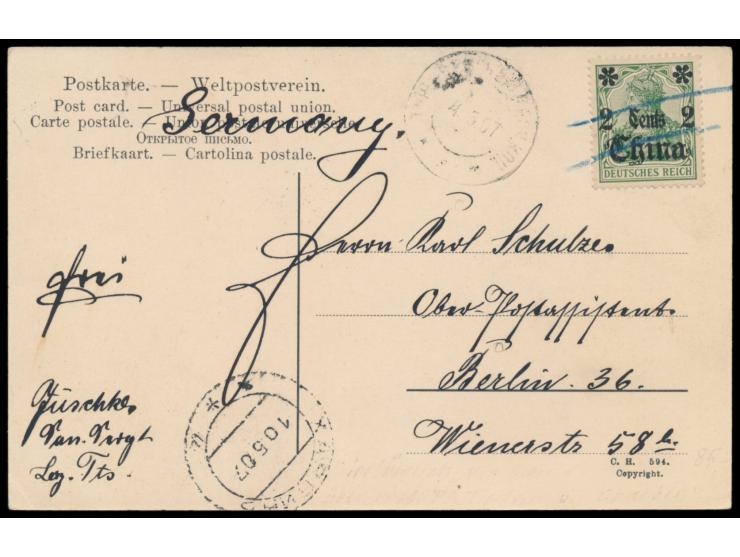 Postkarte. — Weltpostverein.
Post card. — Universal postal union.
Carte postale. — Union postale universelle.
Открытое письмо.
Briefkaart. — Cartolina postale.
Germany.
2 Cents 2
China
DEUTSCHES REICH
Herrn Karl Schulze.
Ober-Postassistent
Berlin. 36.
Wienerstr 58
frei
Juschke
San. Sergt
Laz. Tts.
10 5 07
C. H. 594.
Copyright.